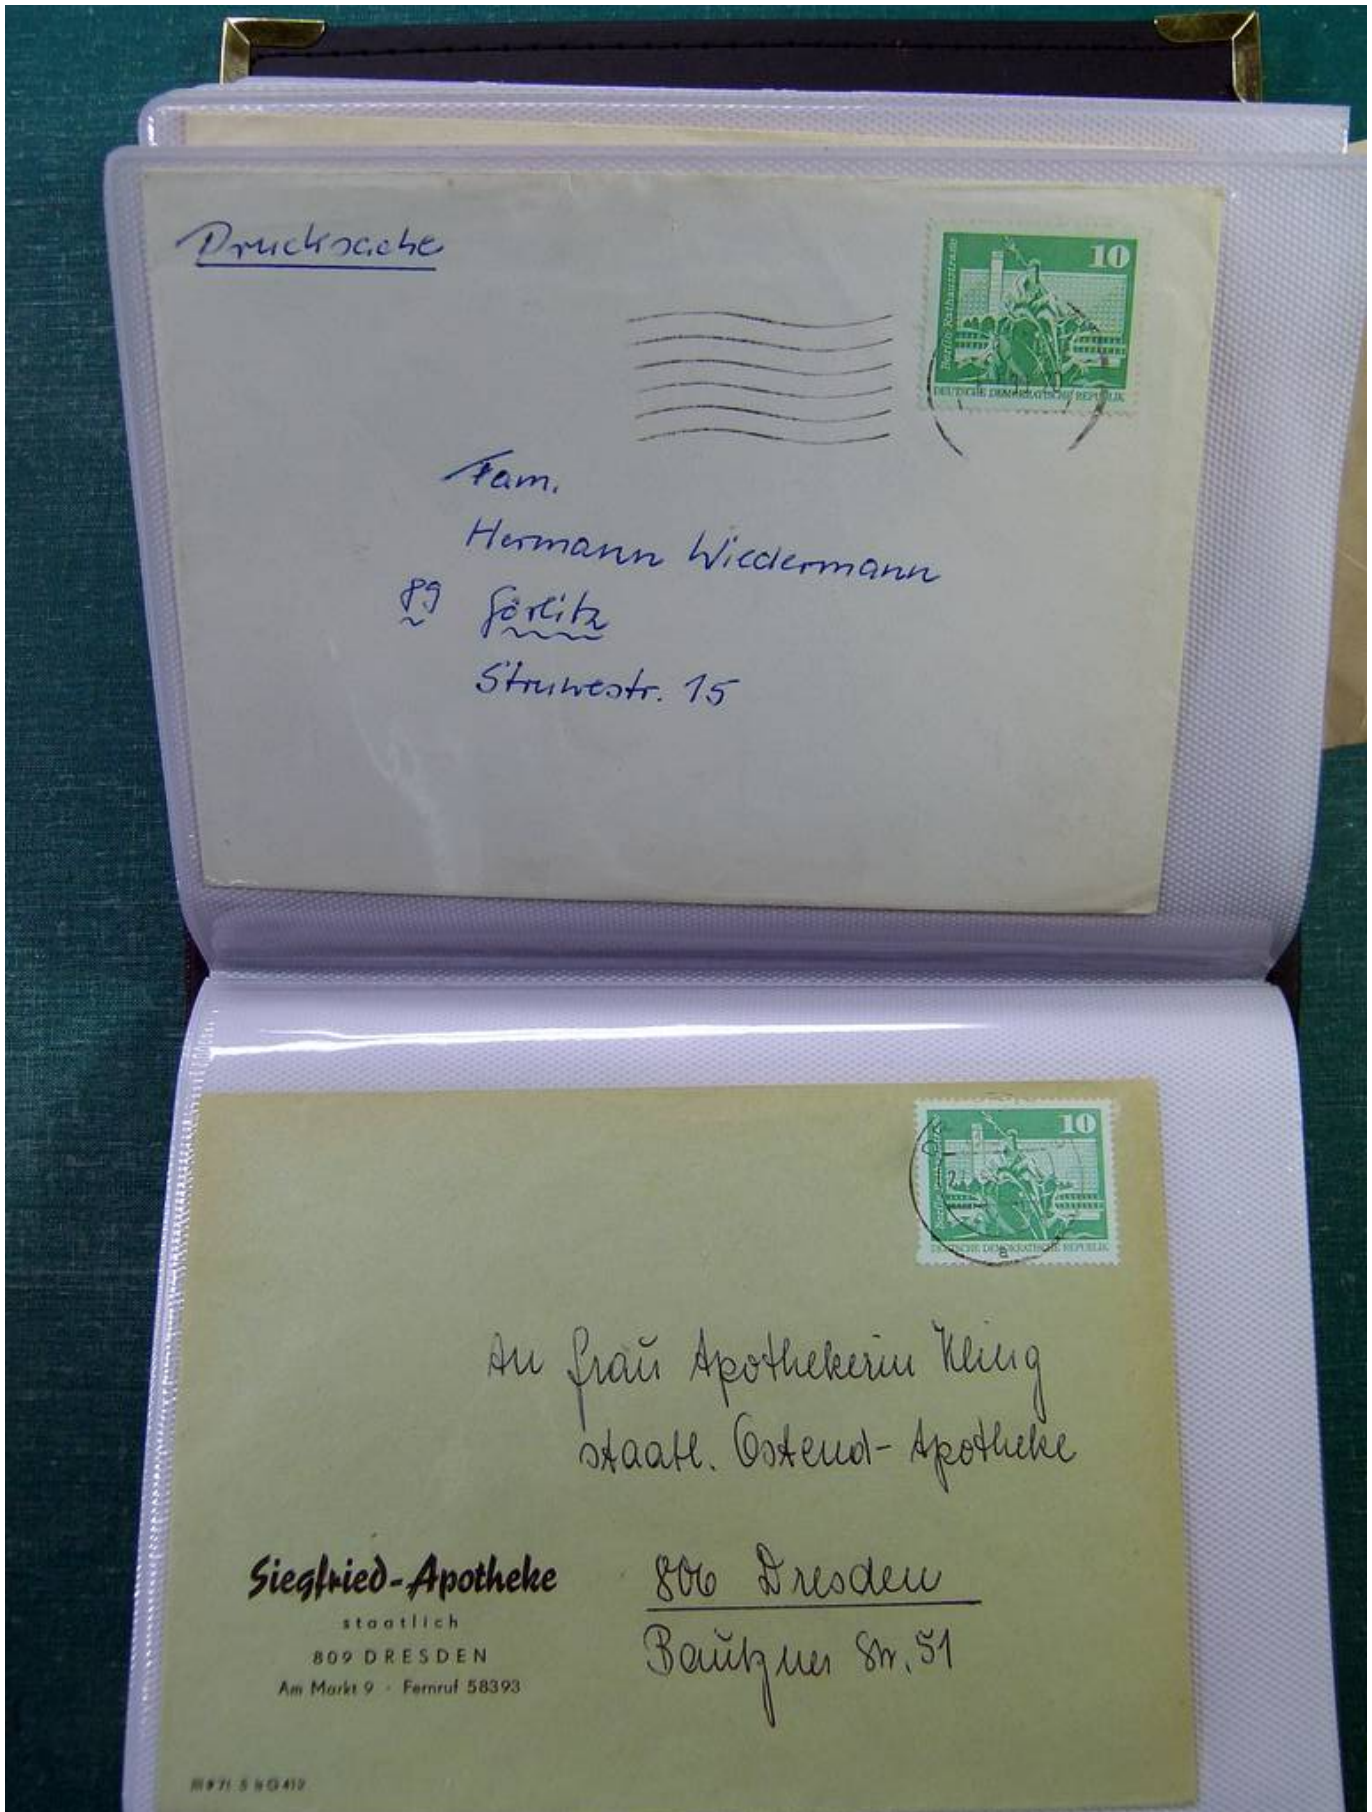 Drucksache
10
Berlin, Rathausstraße
DEUTSCHE DEMOKRATISCHE REPUBLIK
Fam.
Hermann Wiedermann
89 Görlitz
Struvestr. 15
10
DEUTSCHE DEMOKRATISCHE REPUBLIK
An Frau Apothekerin Kling
staatl. Ostend-Apotheke
Siegfried-Apotheke
staatlich
809 DRESDEN
Am Markt 9 · Fernruf 58393
806 Dresden
Bautzner Str. 51